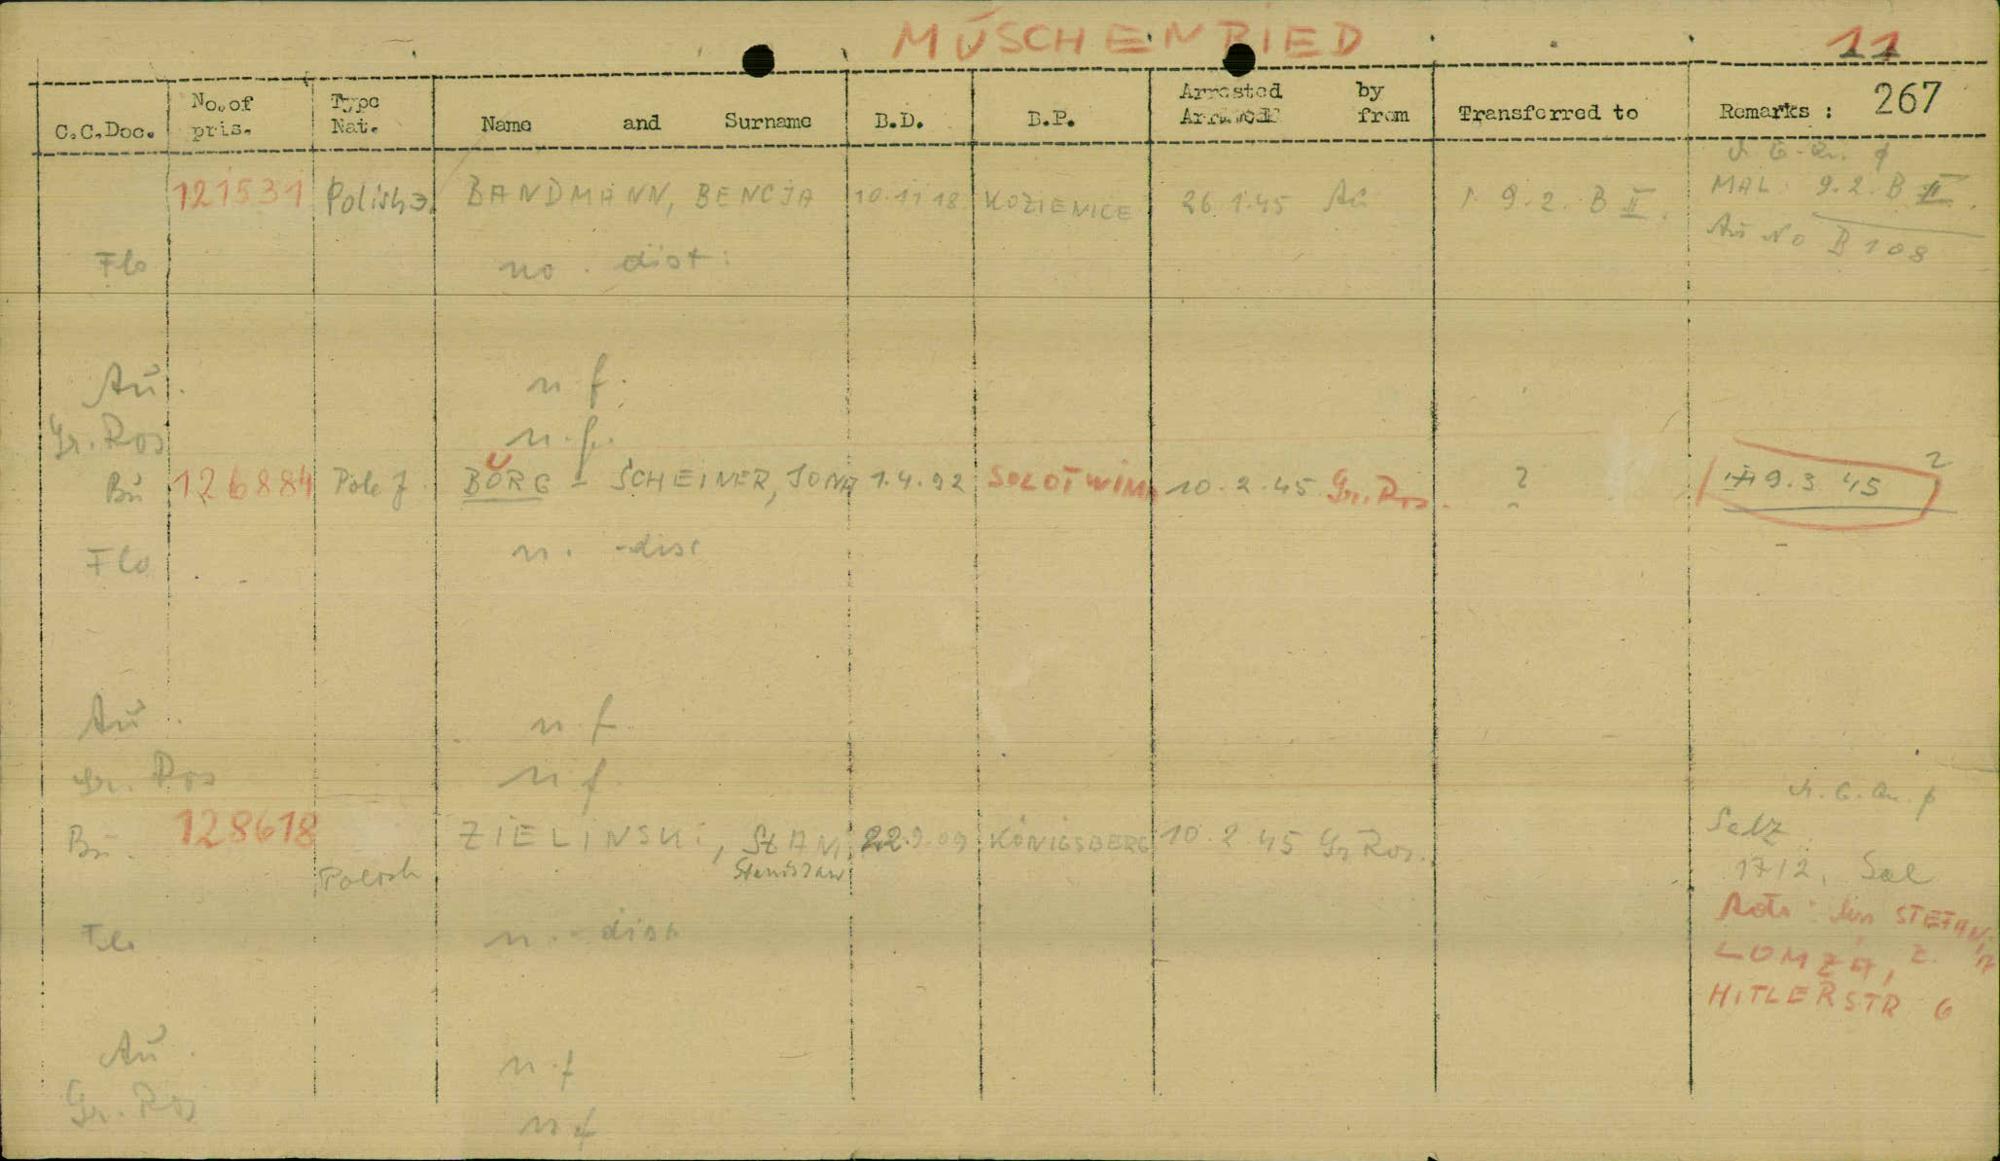 MÜSCHENRIED 11
C.C.Doc. No. of pris. Type Nat. Name and Surname B.D. B.P. Arrested by from Transferred to Remarks : 267
121531 Polish J. BANDMANN, BENCJA 10.11.18 KOZIENICE 26.1.45 Au 9.2. B II. MAL: 9.2. B II.
Au No B 108
Flo no. dist:
Au. n.f.
Gr. Ros n.f.
Bu 126884 Pole J. BORG - SCHEINER, JONA 1.4.92 SOLOTWINA 10.2.45 Gr. Ros. ? 9.3 45 ?
Flo n. disc
Au n.f.
Gr. Ros n f.
Bu. 128618 Polish ZIELINSKI, STAN 22.9.09 KÖNIGSBERG 10.2.45 Gr Ros.
Stanislaw
Flo n. - disc
STEFANIA
LOMZA, Z.
HITLERSTR 6
Au n.f
Gr. Ros n f